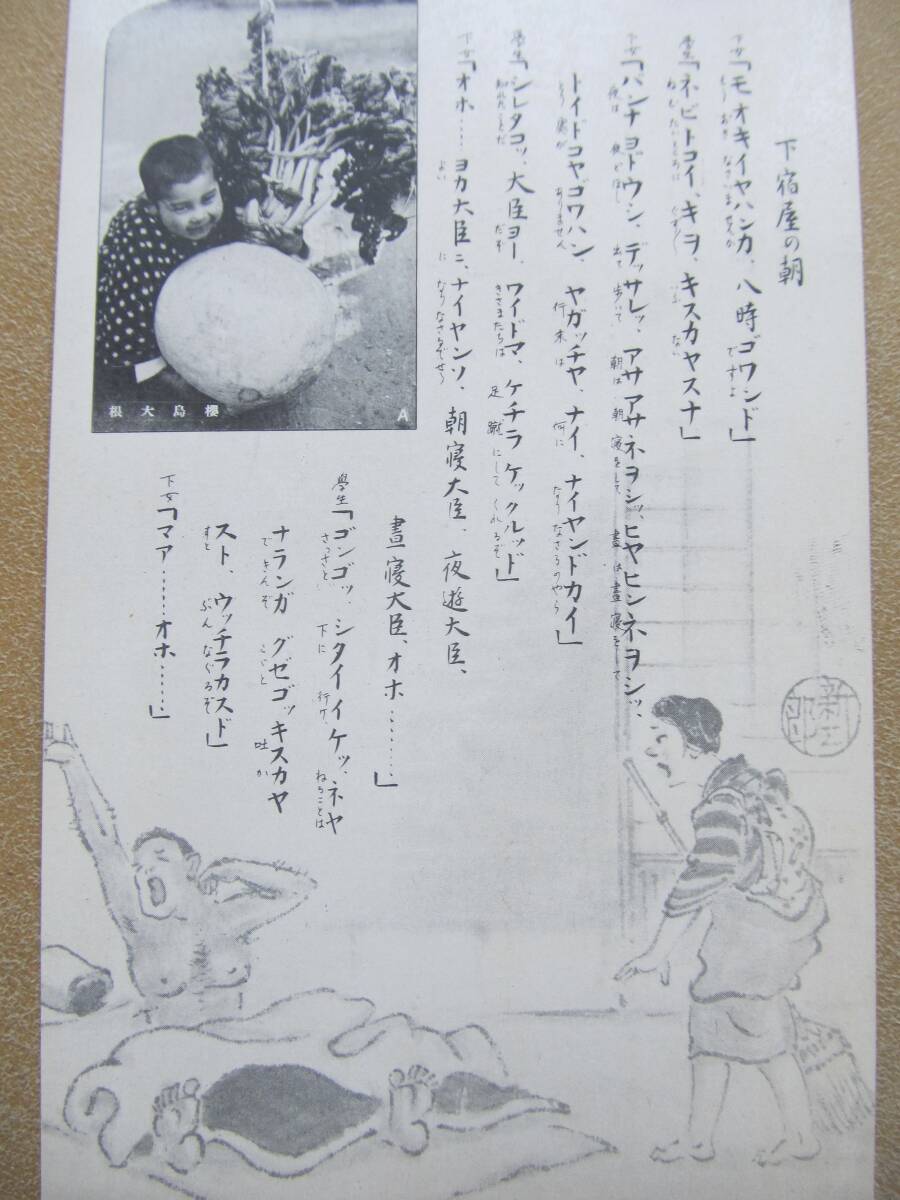 下宿屋の朝
下女「モオキイヤハンカ、八時ゴワンド」
もうおき なさいませんか ですよ
學生「ネビトコイ、キヲ、キスカヤスナ」
ねむたいところに ぐずぐず いふ な
下女「バンナヨドウシ、デッサレッ、アサアサネヲシッ、ヒヤヒンネヲシッ、
夜は 夜どほし 出て 歩いて 朝は 朝寝をして 晝は晝寝をして
トイドコヤゴワハン、ヤガッチヤ、ナイ、ナイヤンドカイ」
とり處が ありません 行末は 何に なりなさるのやら
學生「シレタコッ、大臣ヨー、ワイドマ、ケチラケックルッド」
知れたことだ だぞ きさまたちは 足蹴にしてくれるぞ
下女「オホ……ヨカ大臣ニ、ナイヤンソ、朝寝大臣、夜遊大臣、
よい に なりなさるでせう
晝寝大臣、オホ………」
學生「ゴンゴッ、シタイイケッ、ネヤ
さっさと 下に 行け、 ねることは
ナランガ グゼゴッキスカヤ
できんぞ 吐か
スト、ウッチラカスド」
すと ぶんなぐるぞ
下女「マア……オホ……」
根大島櫻
A